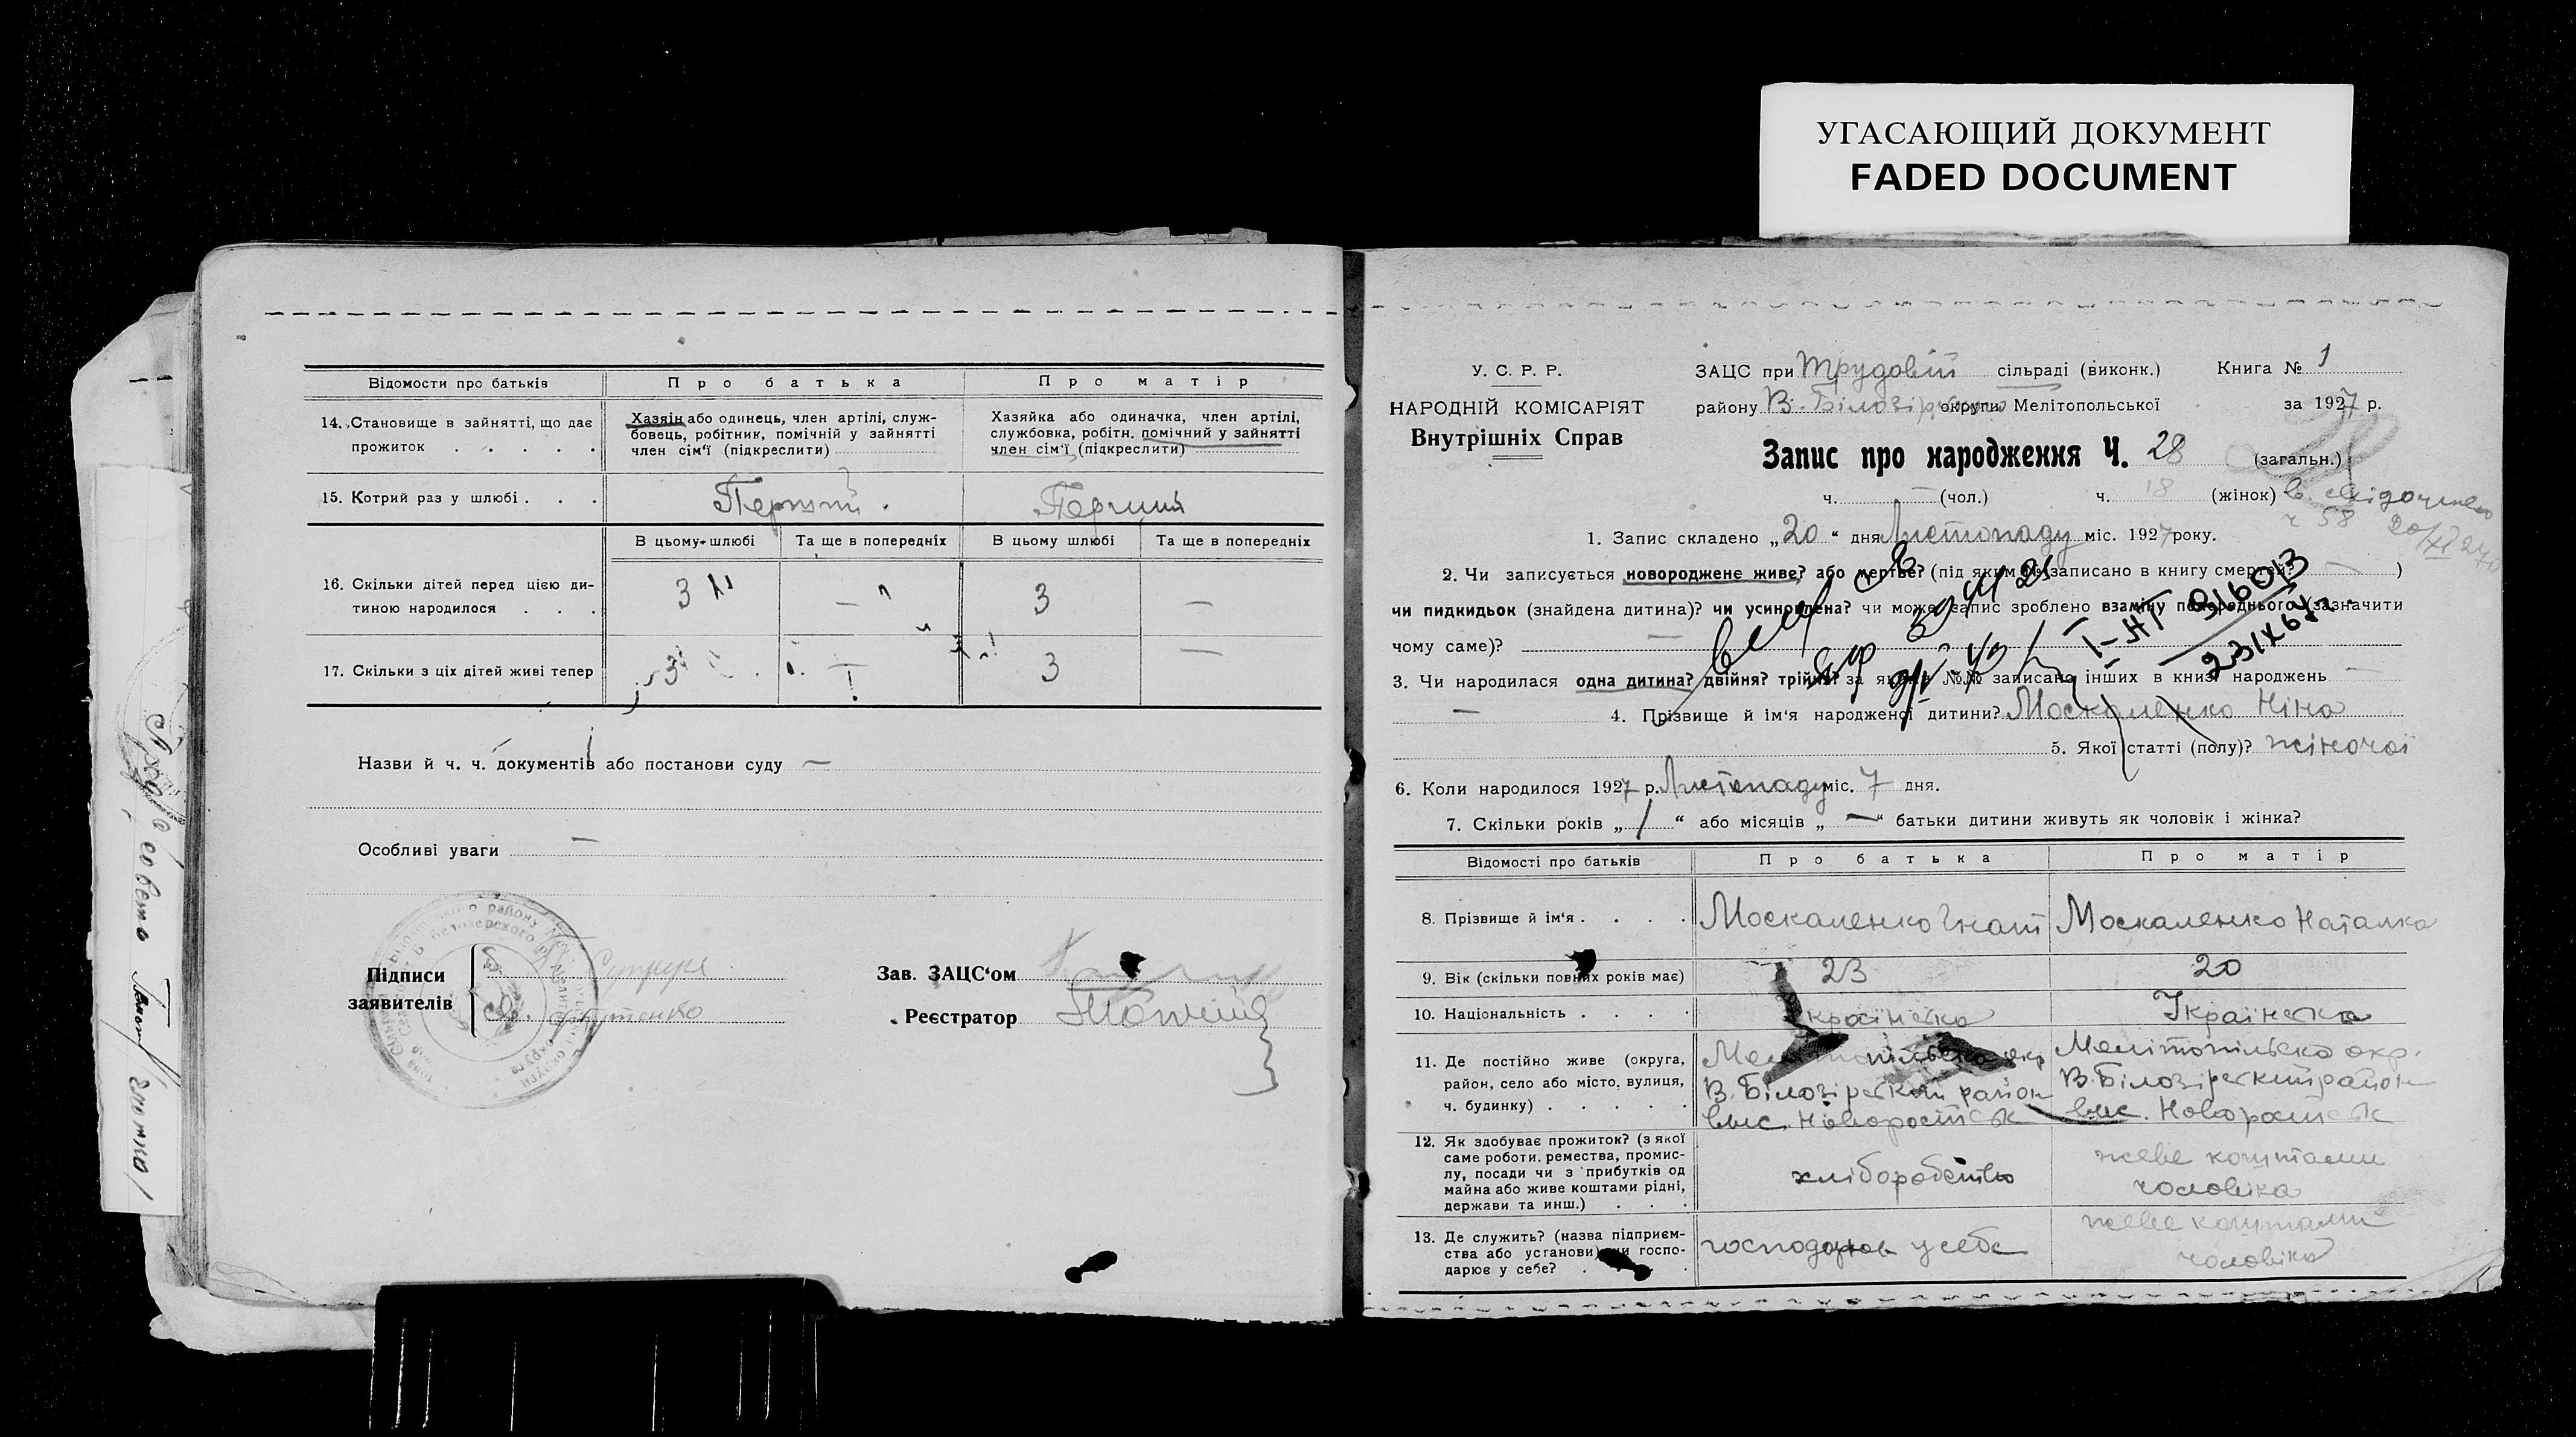 УГАСАЮЩИЙ ДОКУМЕНТ
FADED DOCUMENT
Відомости про батьків
Про батька
Про матір
14. Становище в зайнятті, що дає
прожиток . . . . .
Хазяін або одинець, член артілі, служ-
бовець, робітник, помічній у зайнятті
член сім'ї (підкреслити)
Хазяйка або одиначка, член артілі,
службовка, робітн. помічний у зайнятті
член сім'ї (підкреслити)
15. Котрий раз у шлюбі . . .
Перший
Перший
В цьому шлюбі
Та ще в попередніх
В цьому шлюбі
Та ще в попередніх
16. Скільки дітей перед цією ди-
тиною народилося . . .
3 — 3 —
17. Скільки з ціх дітей живі тепер
3 — 3 —
Назви й ч. ч. документів або постанови суду —
Особливі уваги —
Підписи
заявителів
Зав. ЗАЦС'ом
Реєстратор
У. С. Р. Р.
НАРОДНІЙ КОМІСАРІЯТ
Внутрішніх Справ
ЗАЦС при Трудовій сільраді (виконк.)
Книга № 1
району В. Білозірського округи Мелітопольської
за 1927 р.
Запис про народження Ч. 28 (загальн.)
ч. — (чол.) ч. 18 (жінок)
ч 58
1. Запис складено „20“ дня Листопаду міс. 1927 року.
2. Чи записується новороджене живе? або мертве? (під яким № записано в книгу смертей? — )
чи пидкидьок (знайдена дитина)? чи усиновлена? чи може запис зроблено взаміну попереднього (зазначити
чому саме)? —
3. Чи народилася одна дитина? двійня? трійня? за яким №№ записано інших в книзі народжень —
— 4. Прізвище й ім'я народженої дитини? Москаленко Ніна
5. Якої статті (полу)? жіночої
6. Коли народилося 1927 р. Листопаду міс. 7 дня.
7. Скільки років „ / “ або місяців „ — “ батьки дитини живуть як чоловік і жінка?
Відомості про батьків
Про батька
Про матір
8. Прізвище й ім'я . . . .
Москаленко Гнат
Москаленко Наталка
9. Вік (скільки повних років має)
23
20
10. Національність . . . .
Українська
Українська
11. Де постійно живе (округа,
район, село або місто, вулиця,
ч. будинку) . . . . .
Мелітопільська окр
В. Білозірський район
вис. Новоросійськ
Мелітопільска окр.
В. Білозірский район
вис. Новоросійськ
12. Як здобуває прожиток? (з якої
саме роботи, ремества, промис-
лу, посади чи з прибутків од
майна або живе коштами рідні,
держави та инш.) . . .
хліборобство
живе коштами
чоловіка
13. Де служить? (назва підприєм-
ства або установи) чи госпо-
дарює у себе? . . . .
господарює у себе
живе коштами
чоловіка